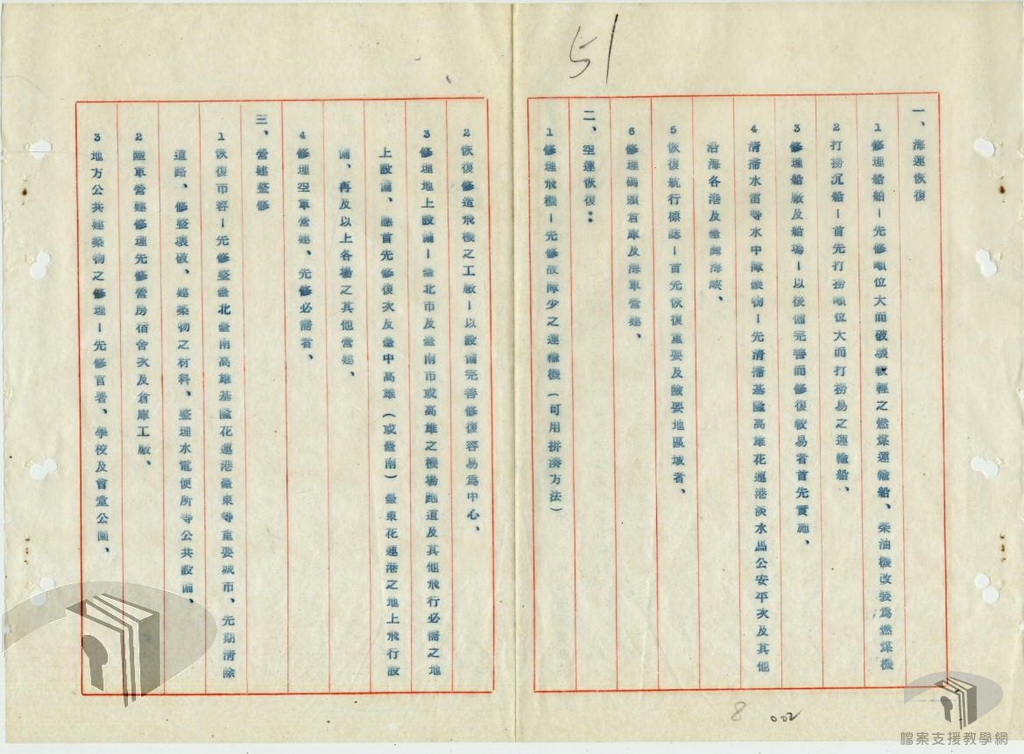 51
一、海運恢復
1 修理船舶－先修噸位大而破壞較輕之燃煤運輸船、柴油機改裝爲燃煤機
2 打撈沉船－首先打撈噸位大而打撈易之運輸船、
3 修理船廠及船塢－以後備完善而修復較易者首先實施、
4 清掃水雷等水中障礙物－先清掃基隆高雄花蓮港淡水馬公安平次及其他
沿海各港及臺灣海峽、
5 恢復航行標誌－首先恢復重要及險要地區域者、
6 修理碼頭倉庫及海軍營建、
二、空運恢復：
1 修理飛機－先修故障少之運輸機（可用拼湊方法）
2 恢復修造飛機之工廠－以設備完善修復容易爲中心、
3 修理地上設備－臺北市及臺南市或高雄之機場跑道及其他飛行必需之地
上設備、應首先修復次及臺中高雄（或臺南）臺東花蓮港之地上飛行設
備、再及以上各場之其他營建、
4 修理空軍營建、先修必需者、
三、營建整修
1 恢復市容－先修整臺北臺南高雄基隆花蓮港臺東等重要城市、先期清除
道路、修整破壞、建築物之材料、整理水電便所等公共設備、
2 陸軍營建修理先修營房宿舍次及倉庫工廠、
3 地方公共建築物之修理－先修官署、學校及會堂公園、
8 002
檔案支援教學網